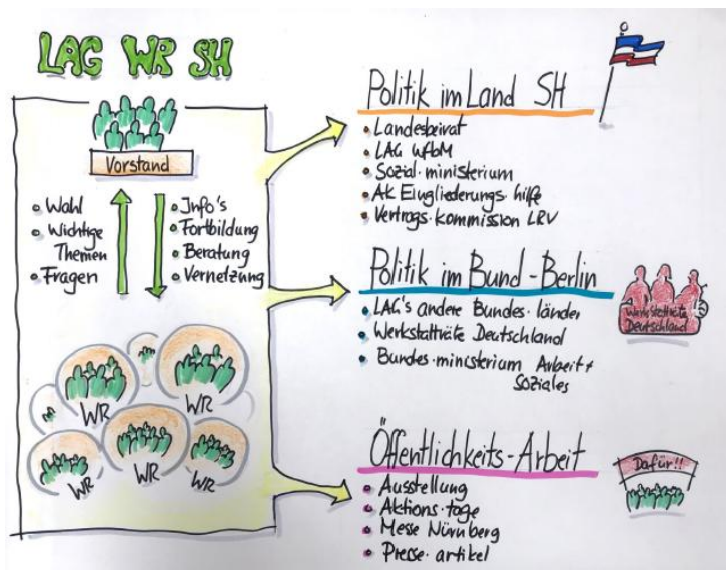 LAG WR SH
Vorstand
• Wahl
• Wichtige
Themen
• Fragen
• Info's
• Fortbildung
• Beratung
• Vernetzung
WR
WR
WR
WR
WR
Politik im Land SH
• Landesbeirat
• LAG WfbM
• Sozial·ministerium
• AK Eingliederungs·hilfe
• Vertrags·kommission LRV
Politik im Bund - Berlin
• LAG's andere Bundes·länder
• Werkstatträte Deutschland
• Bundes·ministerium Arbeit +
Soziales
Werkstatträte
Deutschland
Öffentlichkeits-Arbeit
• Ausstellung
• Aktions·tage
• Messe Nürnberg
• Presse·artikel
Dafür!!